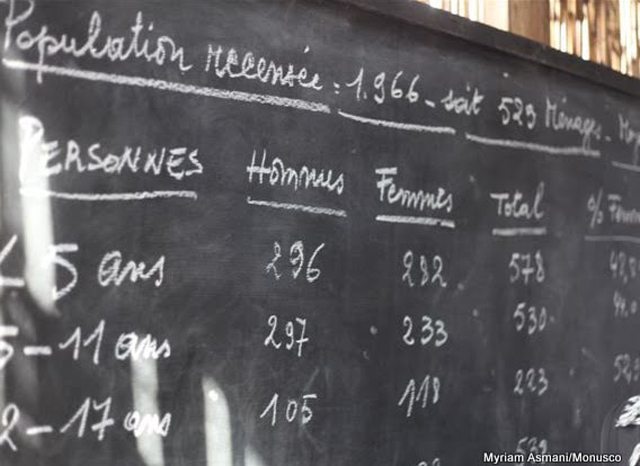 Population recensée : 1.966 - soit 529 Ménages -
PERSONNES Hommes Femmes Total %
< 5 ans 296 282 578
5-11 ans 297 233 530
2-17 ans 105 118 223
Myriam Asmani/Monusco